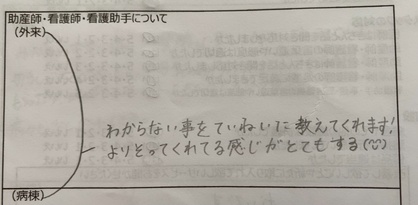 助産師・看護師・看護助手について
(外来)
わからない事をていねいに教えてくれます!
よりそってくれてる感じがとてもする(◡̈)
(病棟)